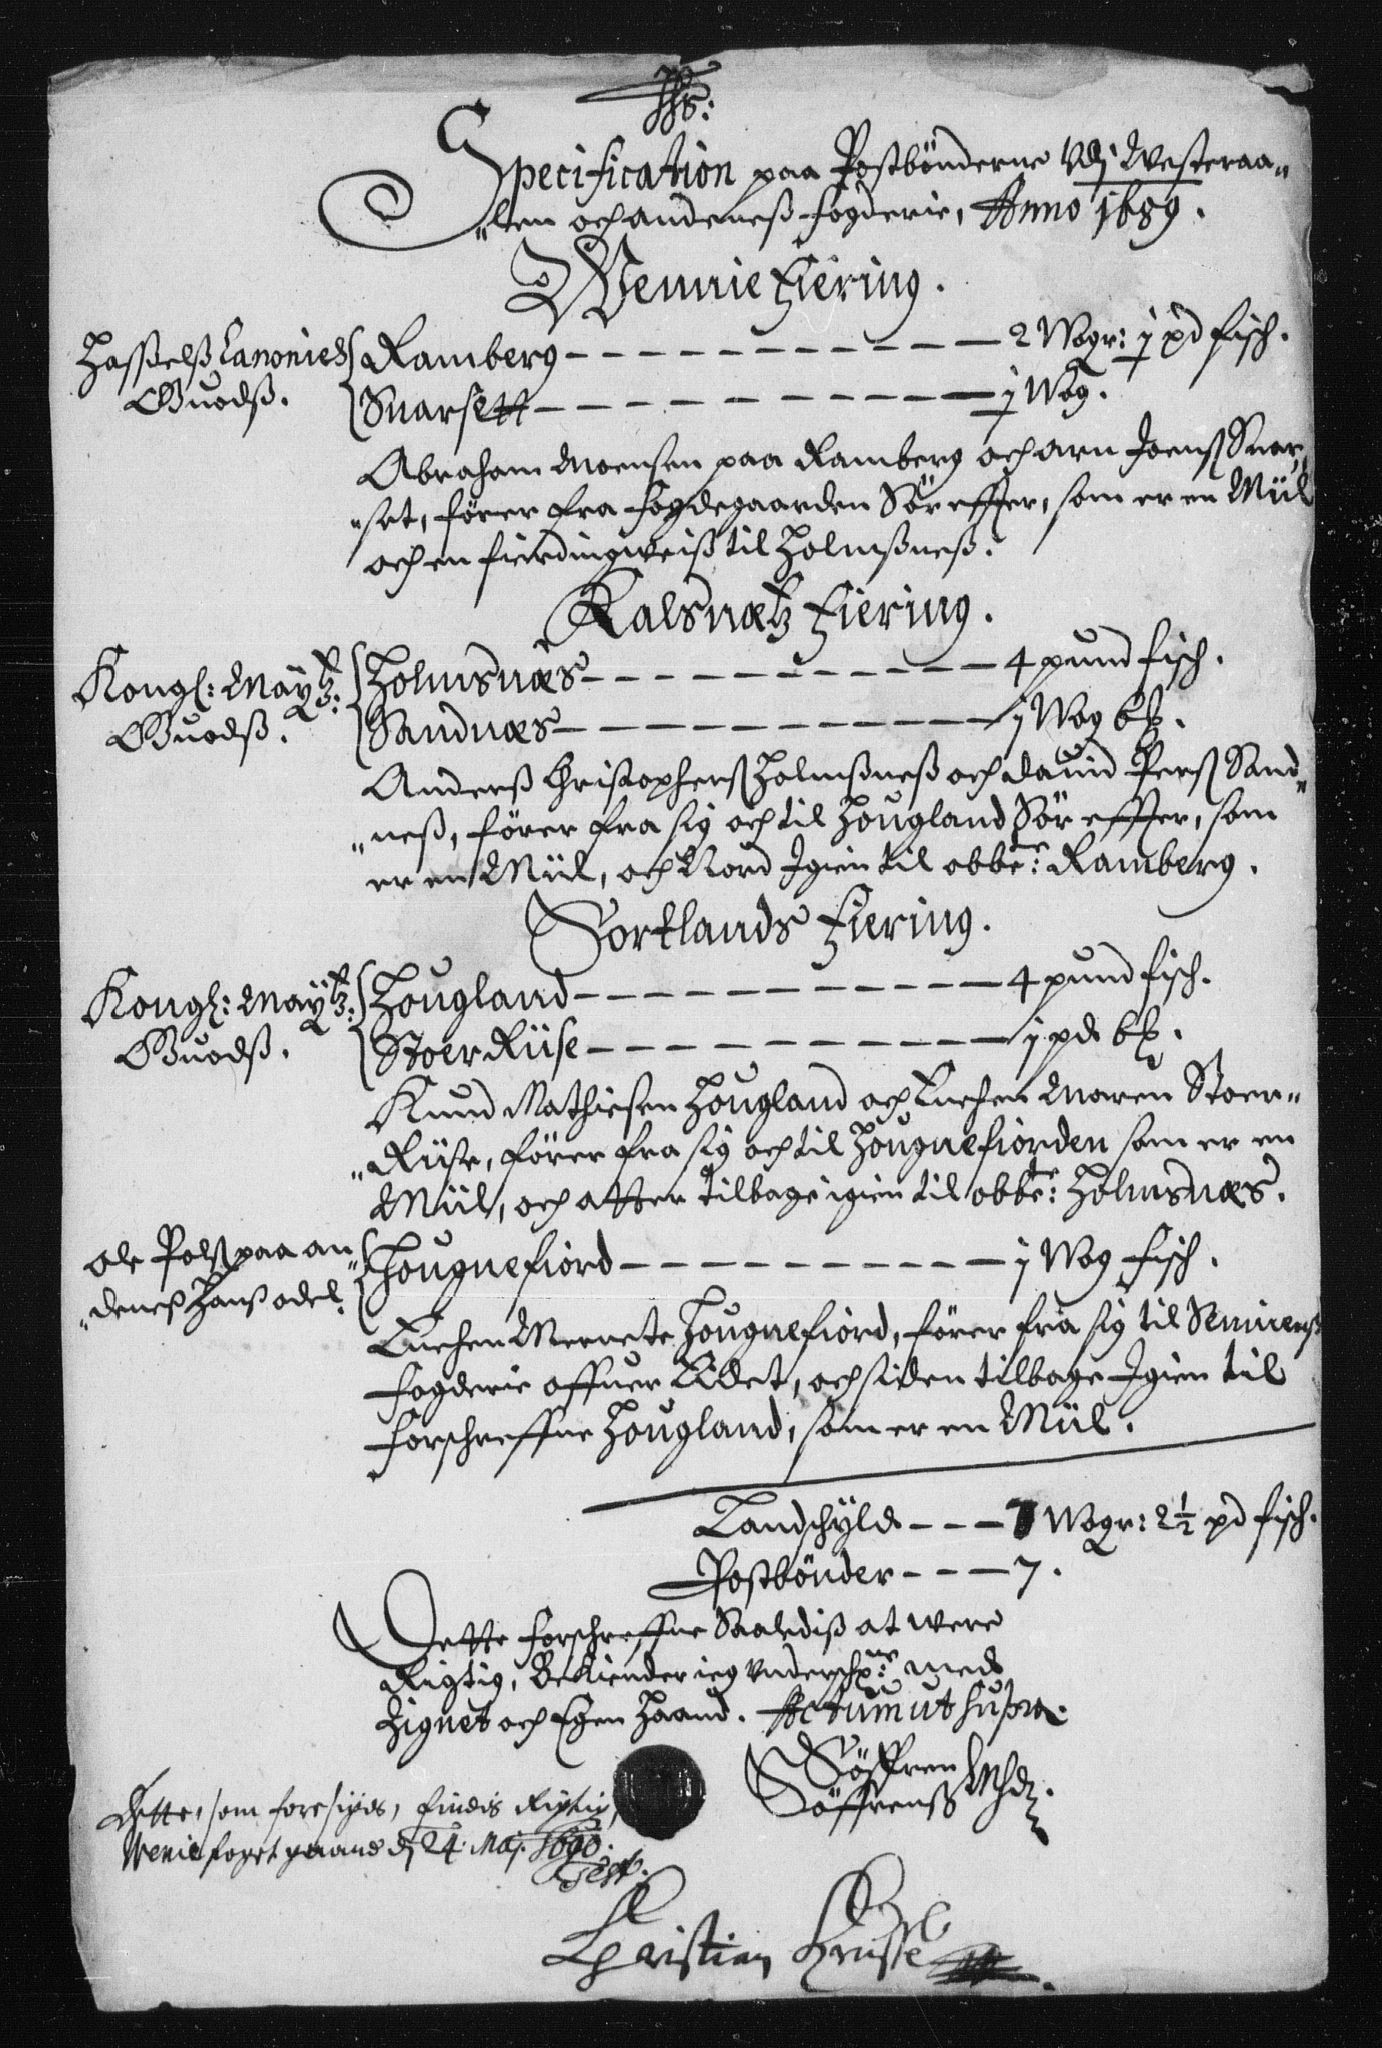 Jhs:
Specification paa Postbönderne Udj Westeraa„
„len och andeneß fogderie, Anno 1689.
Wennie Fiering.
Haßelß Canonie Guodß. Ramberg — 2 Wogr: j pd fisch.
Snarsett — j Wog.
Abraham Moensen paa Ramberg och arn Joenß Snar„
„set, förer fra fogdegaarden Sör effter, som er en Miil
och en fierdingweiß til Holmßneß.
Kalsnætz Fiering.
Kongl: Maÿtz: Guodß. Holmsnæs — 4 pund fisch.
Sandnæs — j Wog
Anderß Christopherß Holmßneß och dauid Perß Sand„
„neß, förer fra sig och til Hougland Sör effter, som
er en Miil, och Nord Igien til obbte: Ramberg.
Sortlands Fiering.
Kongl: Maÿtz: Guodß. Hougland — 4 pund fisch.
StoerRiise — j pd
Knud Mathiesen Hougland och Enchen Maren Stoer„
„Riise, förer fra sig och til Hougnefiorden som er en
Miil, och atter tilbage igien til obbte: Holmsnæs.
ole Polß paa an„
„deneß Hanß odel. Hougnefiord — j Wog fisch.
Enchen Merrete Hougnefiord, förer fra sig til Senniens
fogderie offuer Eidet, och siden tilbage Igien til
forschreffne Hougland, som er en Miil.
Landschyld — 7 Wogr: 2½ pd fisch.
Postbönder — 7.
Dette forschreffne Saalediß at were
Rigtig, Bekiender ieg underschr: med
Zignet och Egen Haand. Actum ut supra.
Söffren
Söffrenß
Dette, som foresiges, findis Rigtig,
Wenie fogetgaard dj 24. Maj. 1690.
Test.
Christian Krusse